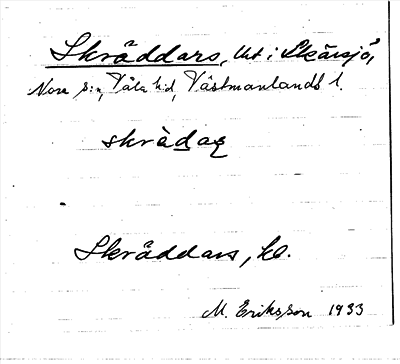 Skräddars, Ut i Skärsjö,
Nora s:n, Våla hd, Västmanlands l.
skrädaȥ
Skräddars, kl.
M. Eriksson 1933